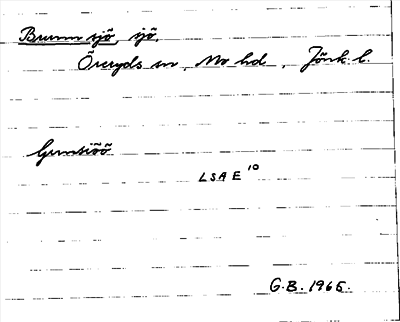 Brunn sjö, sjö,
Öreryds sn, Mo hd, Jönk. l.
Gunsiöö
LSA E 10
G.B. 1965.